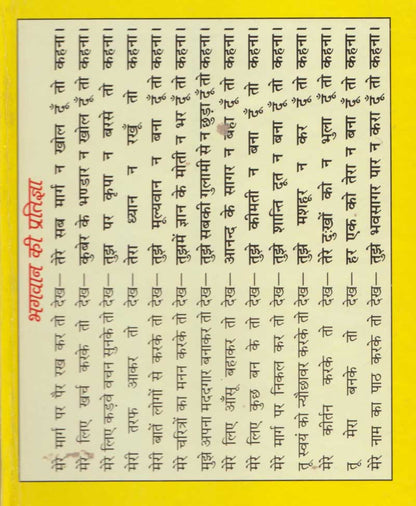 भगवान की प्रतिज्ञा
मेरे मार्ग पर पैर रख कर तो देख— तेरे सब मार्ग न खोल दूँ तो कहना।
मेरे लिए खर्च करके तो देख— कुबेर के भण्डार न खोल दूँ तो कहना।
मेरे लिए कड़वे वचन सुनके तो देख— तुझ पर कृपा न बरसे तो कहना।
मेरी तरफ आकर तो देख— तेरा ध्यान न रखूँ तो कहना।
मेरी बातें लोगों से करके तो देख— तुझे मूल्यवान न बना दूँ तो कहना।
मेरे चरित्रों का मनन करके तो देख— तुझमें ज्ञान के मोती न भर दूँ तो कहना।
मुझे अपना मददगार बनाकर तो देख— तुझे सबकी गुलामी से न छुड़ा दूँ तो कहना।
मेरे लिए आँसू बहाकर तो देख— आनन्द के सागर न बहा दूँ तो कहना।
मेरे लिए कुछ बन के तो देख— तुझे कीमती न बना दूँ तो कहना।
मेरे मार्ग पर निकल कर तो देख— तुझे शान्ति दूत न बना दूँ तो कहना।
तू स्वयं को न्यौछावर करके तो देख— तुझे मशहूर न कर दूँ तो कहना।
मेरे कीर्तन करके तो देख— तेरे दुःखों को न भुला दूँ तो कहना।
तू मेरा बनके तो देख— हर एक को तेरा न बना दूँ तो कहना।
मेरे नाम का पाठ करके तो देख— तुझे भवसागर पार न करा दूँ तो कहना।